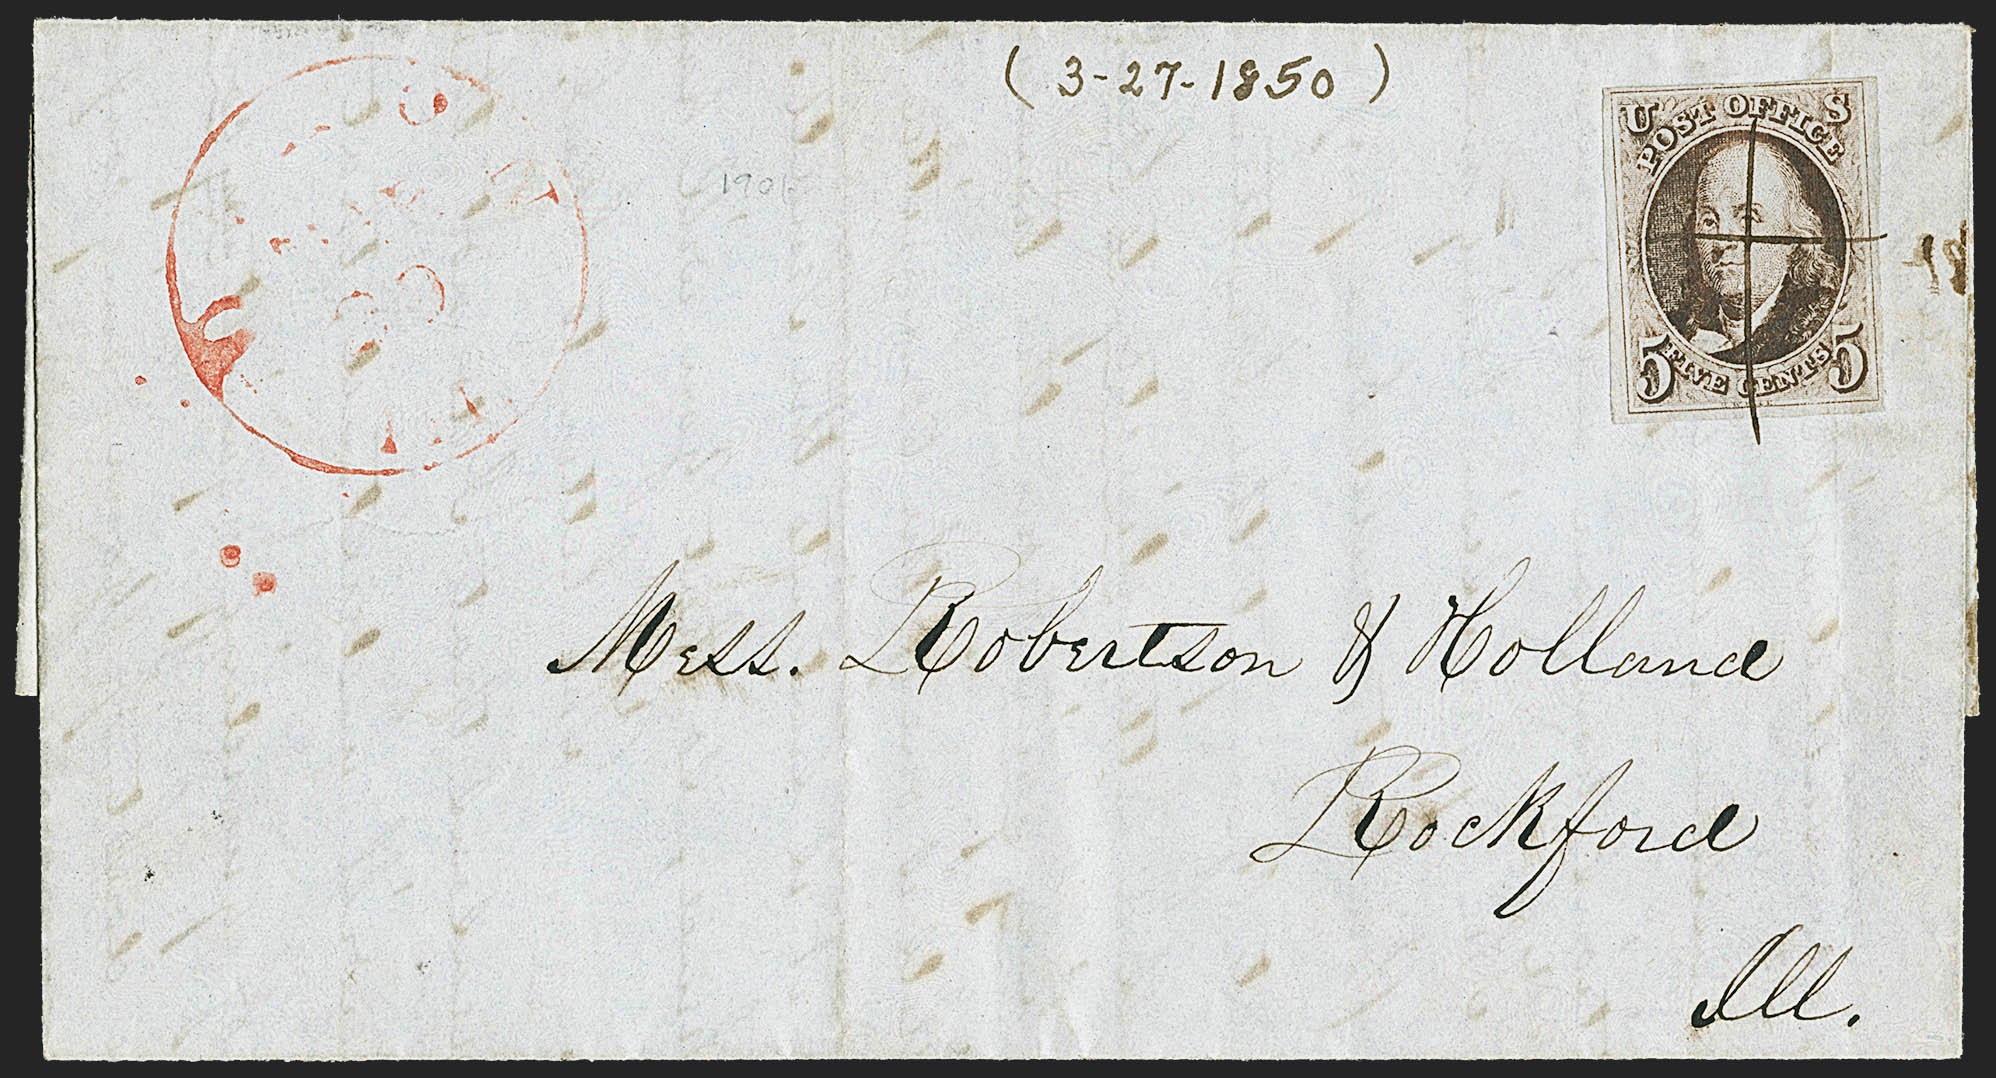 ( 3-27-1850 )
1901
U S
POST OFFICE
5 FIVE CENTS 5
Mess. Robertson & Holland
Rockford
Ill.